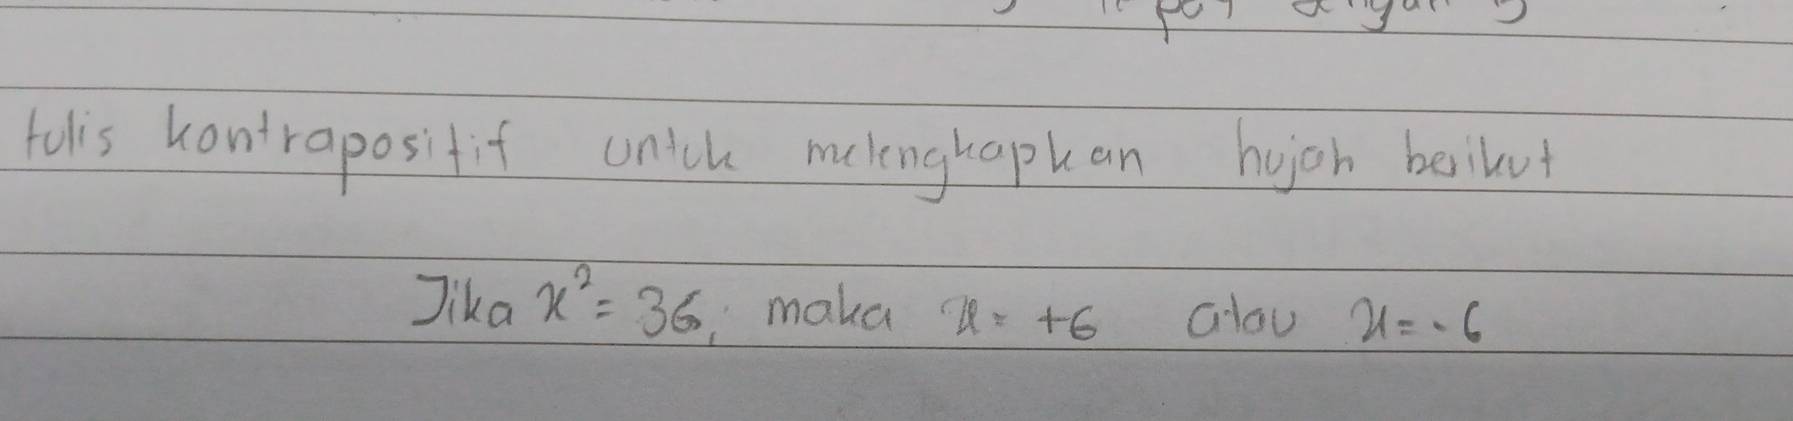 dengan 5
tulis kontrapositif untuk melengkapkan hujah berikut
Jika x² = 36, maka x = +6 atau x = -6